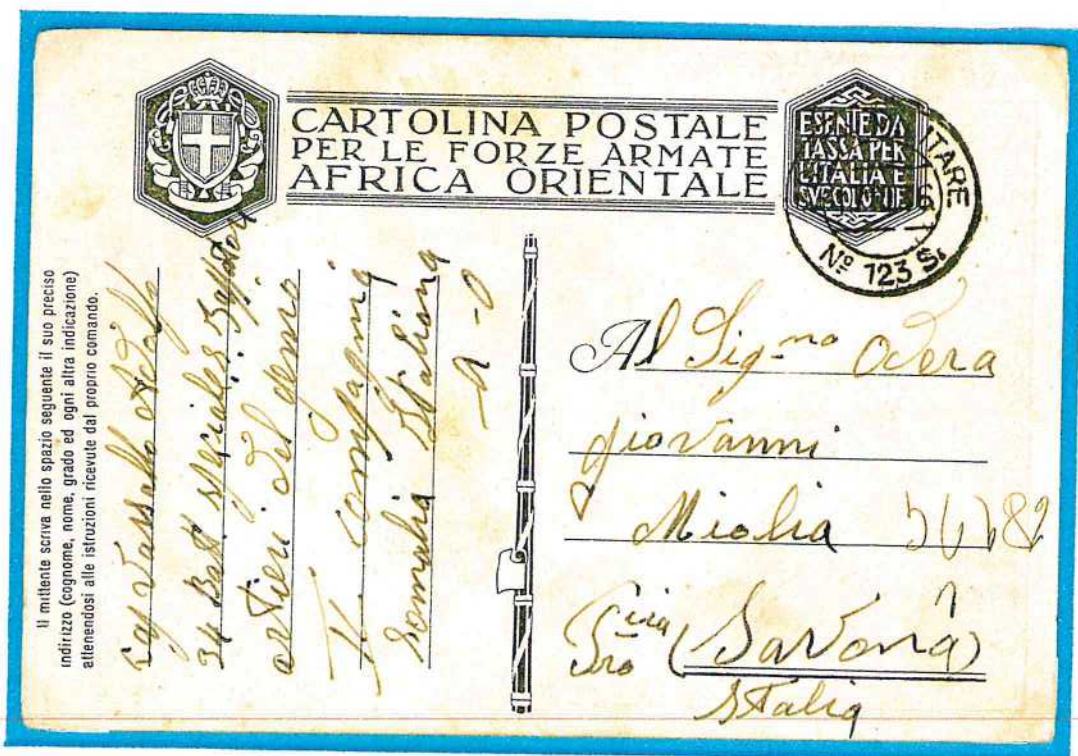 CARTOLINA POSTALE
PER LE FORZE ARMATE
AFRICA ORIENTALE
ESENTE DA
TASSA PER
L'ITALIA E
SVE COLONIE
ITARE
Nº 123 S.
Il mittente scriva nello spazio seguente il suo preciso
indirizzo (cognome, nome, grado ed ogni altra indicazione)
attenendosi alle istruzioni ricevute dal proprio comando.
Vassallo
34 Batt speciale
del genio
compagnia
Somalia Italiana
A-O
Al Sig-mo Odera
giovanni
Miolia
(Savona)
Italia